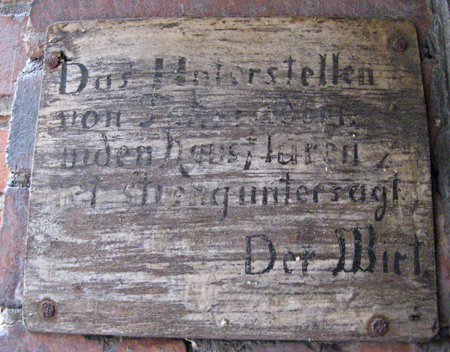 Das Unterstellen
von Fahrrädern
inden Hausfluren
ist streng untersagt.
Der Wirt.